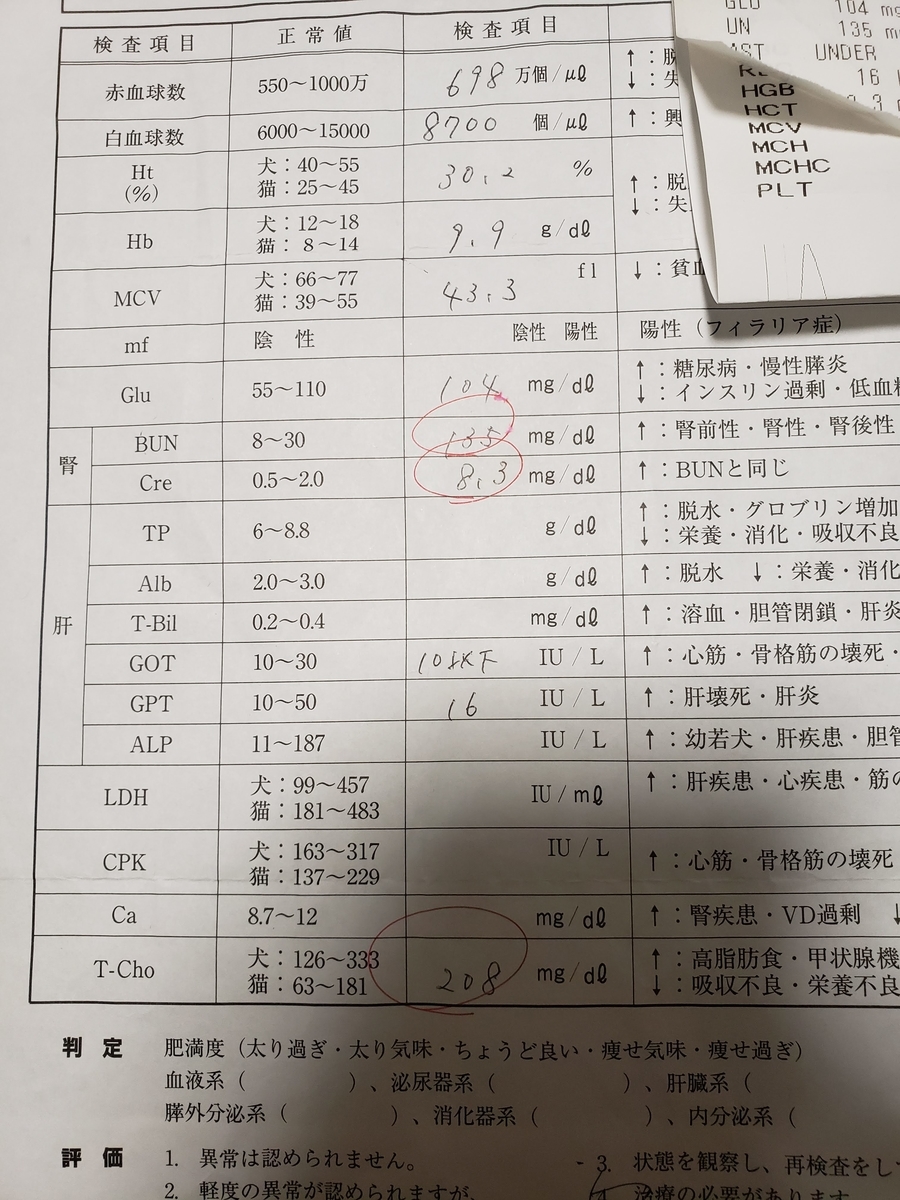 検査項目 正常値 検査項目
赤血球数 550～1000万 698 万個/μl ↑：脱
↓：失
白血球数 6000～15000 8700 個/μl ↑：興
Ht (%) 犬：40～55 猫：25～45 30.2 % ↑：脱
↓：失
Hb 犬：12～18 猫：8～14 9.9 g/dl
MCV 犬：66～77 猫：39～55 43.3 fl ↓：貧血
mf 陰 性 陰性 陽性 陽性（フィラリア症）
Glu 55～110 104 mg/dl ↑：糖尿病・慢性膵炎
↓：インスリン過剰・低血糖
腎
BUN 8～30 135 mg/dl ↑：腎前性・腎性・腎後性
Cre 0.5～2.0 8.3 mg/dl ↑：BUNと同じ
肝
TP 6～8.8 g/dl ↑：脱水・グロブリン増加
↓：栄養・消化・吸収不良
Alb 2.0～3.0 g/dl ↑：脱水 ↓：栄養・消化
T-Bil 0.2～0.4 mg/dl ↑：溶血・胆管閉鎖・肝炎
GOT 10～30 10以下 IU/L ↑：心筋・骨格筋の壊死・
GPT 10～50 16 IU/L ↑：肝壊死・肝炎
ALP 11～187 IU/L ↑：幼若犬・肝疾患・胆管
LDH 犬：99～457 猫：181～483 IU/ml ↑：肝疾患・心疾患・筋の
CPK 犬：163～317 猫：137～229 IU/L ↑：心筋・骨格筋の壊死
Ca 8.7～12 mg/dl ↑：腎疾患・VD過剰 ↓
T-Cho 犬：126～333 猫：63～181 208 mg/dl ↑：高脂肪食・甲状腺機
↓：吸収不良・栄養不良
判 定 肥満度（太り過ぎ・太り気味・ちょうど良い・痩せ気味・痩せ過ぎ）
血液系（ ）、泌尿器系（ ）、肝臓系（
膵外分泌系（ ）、消化器系（ ）、内分泌系（
評 価 1. 異常は認められません。 3. 状態を観察し、再検査をし
2. 軽度の異常が認められますが、 4. 治療の必要があります
GLU 104 mg
UN 135 m
AST UNDER
16
HGB
HCT
MCV
MCH
MCHC
PLT